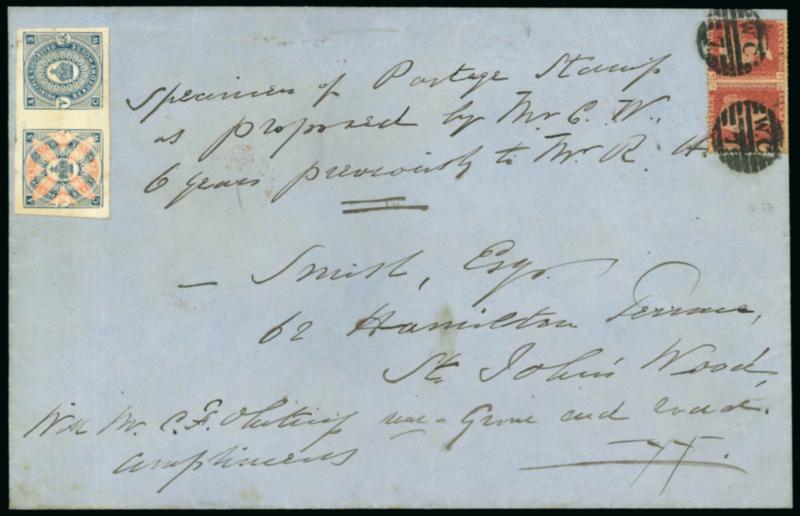 Specimen of Postage Stamp
as proposed by Mr C. W.
6 years previously to Mr R. H.
— Smith, Esq.
62 Hamilton Terrace,
St. John's Wood,
near Grove end road.
With Mr. C. F. Whiting
compliments
W.C
7
W.C
7